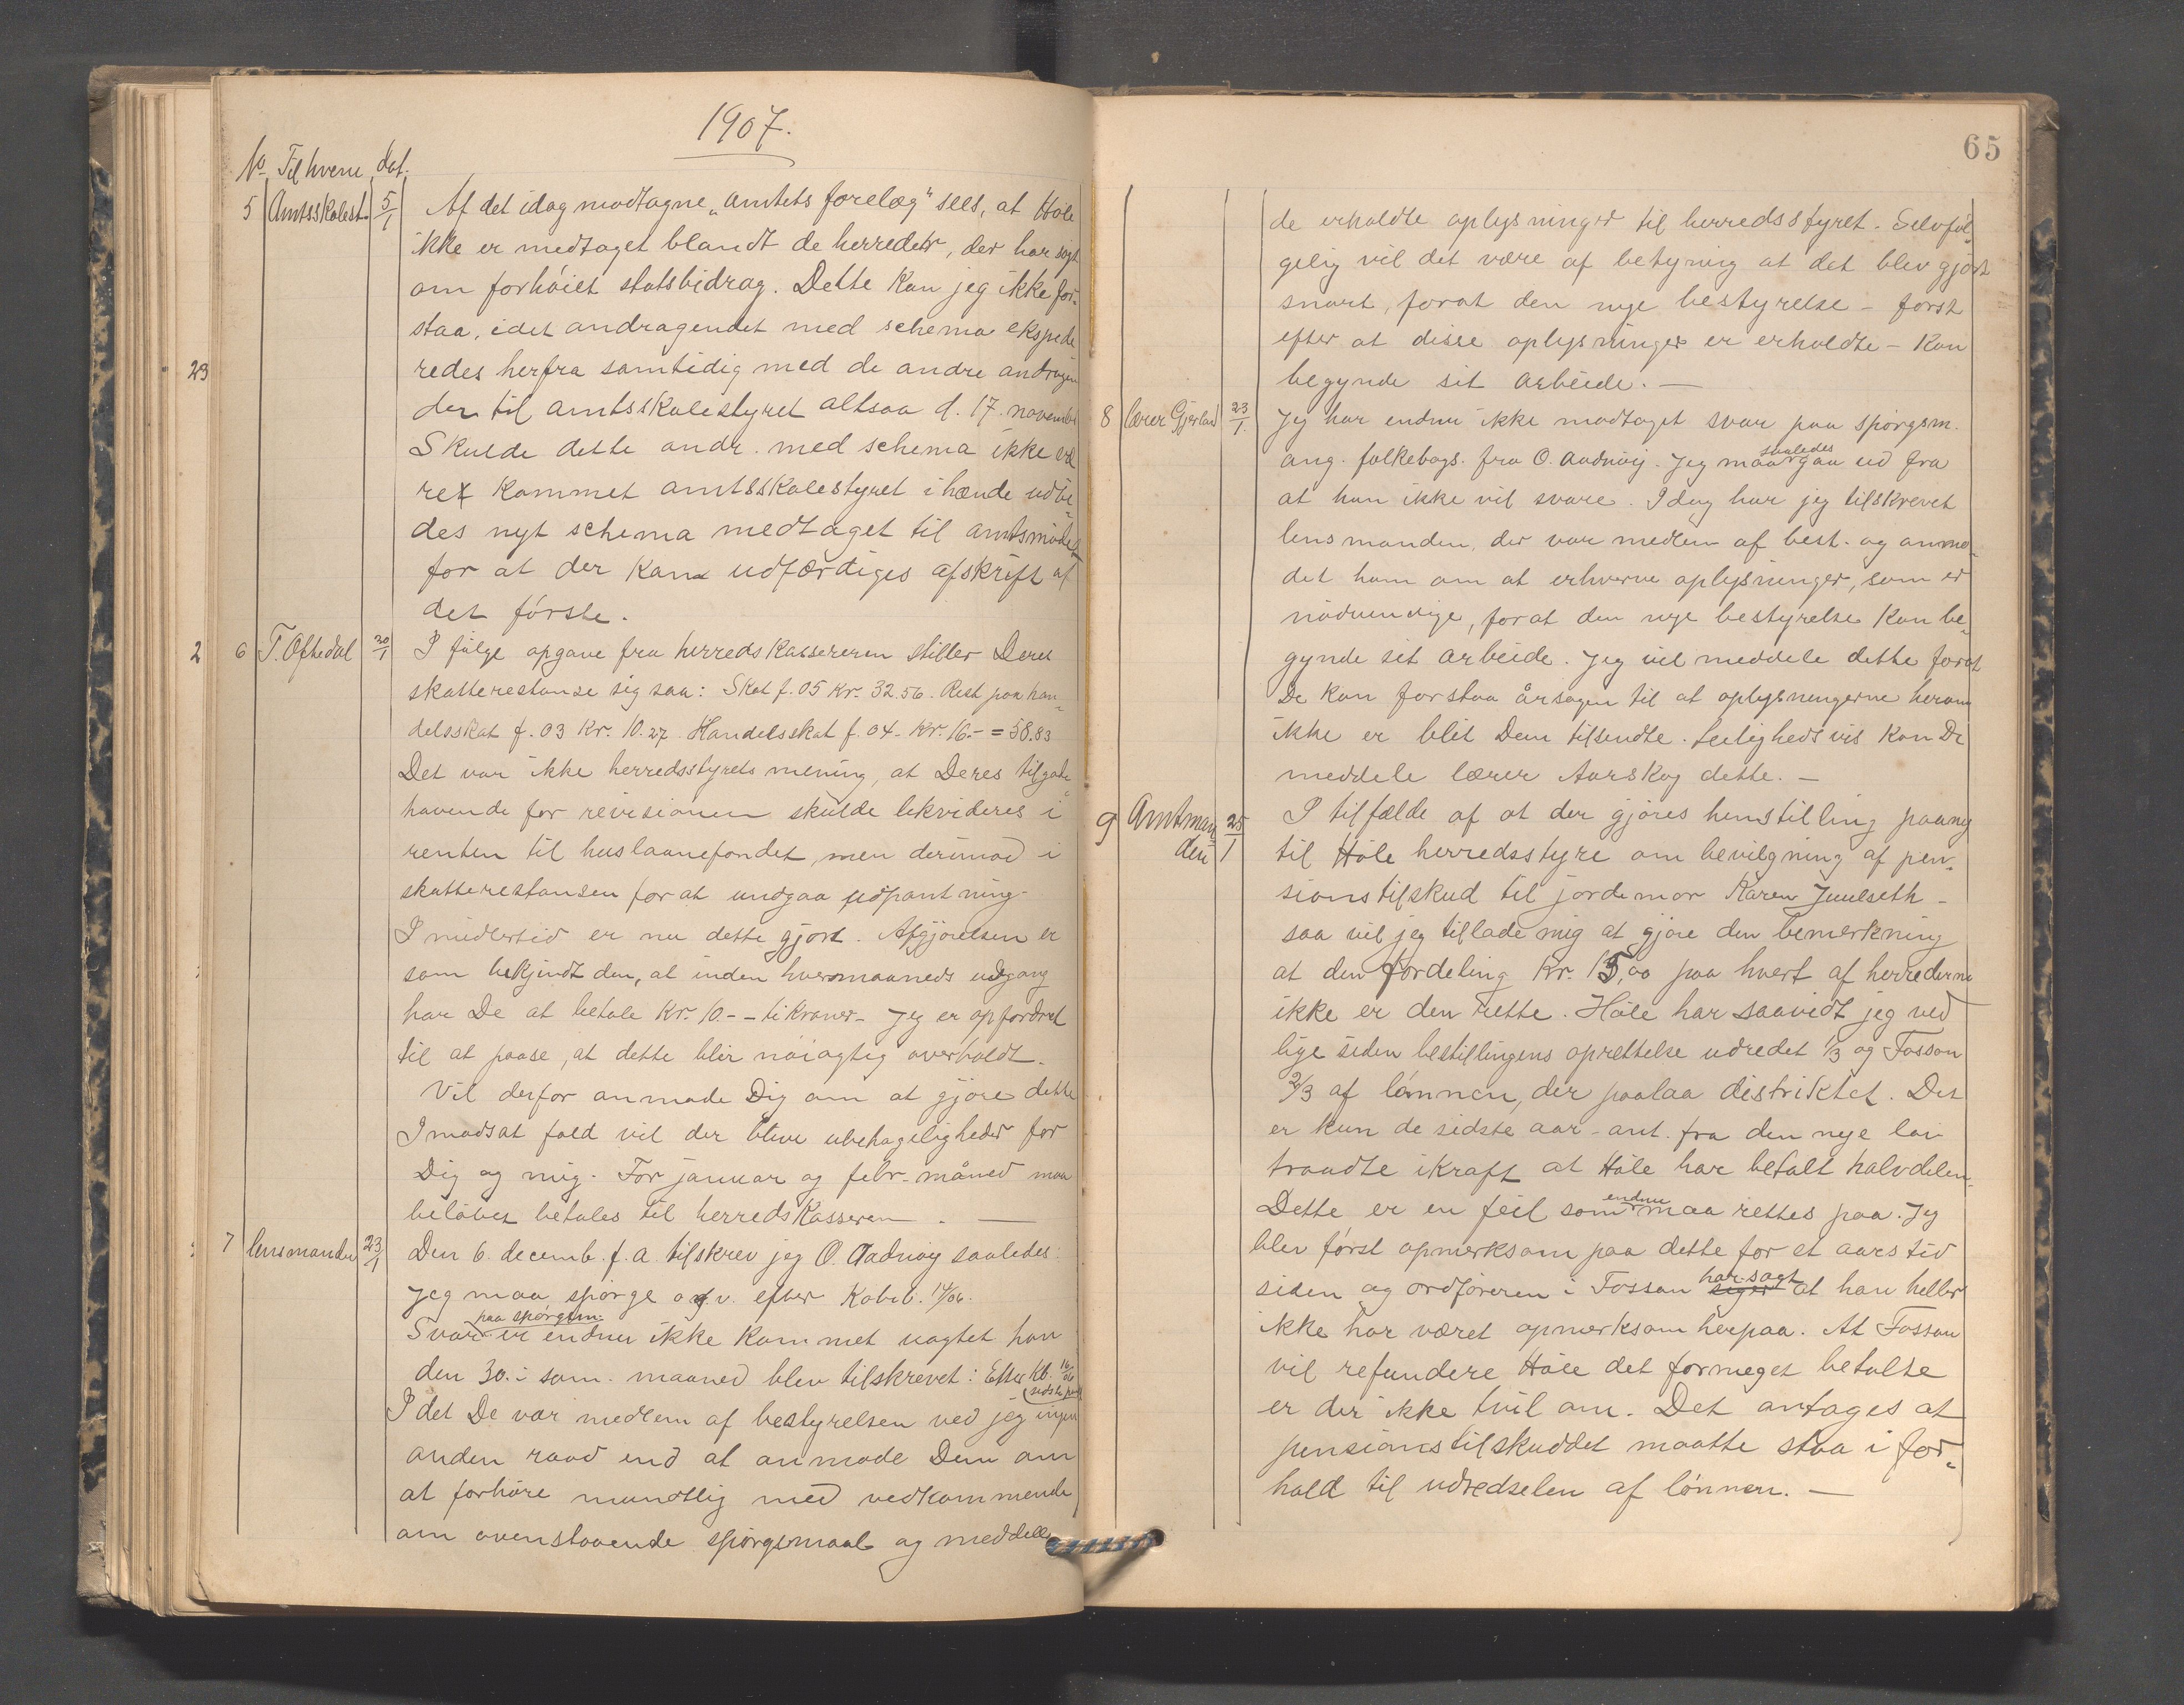 1907.
No Til hvem dat.
5 Amtsskolest. 5/1 Af det idag modtagne „amtets forelæg" sees, at Höle
ikke er medtaget blandt de herreder, der har søgt
om forhöiet statsbidrag. Dette kan jeg ikke for-
staa, idet andragendet med schema ekspede
redes herfra samtidig med de andre andragen
der til amtsskolestyret altsaa d. 17. novembr
Skulde dette andr. med schema ikke væ
ret kommet amtsskolestyret ihænde udbe-
des nyt schema medtaget til amtsmödet
for at der kan udfærdiges afskrift af
det förste.
6 T. Oftedal 20/1 I fölge opgave fra herredskassereren stiller Deres
skatterestanse sig saa: Skat f. 05 Kr. 32.56. Rest paa han-
delsskat f. 03 Kr. 10.27. Handelsskat f. 04. Kr. 16.- = 58.83
Det var ikke herredsstyrets mening, at Deres tilgode
havende for revisionen skulde likvideres i
renten til huslaanefondet, men derimod i
skatterestansen for at undgaa udpantning.
Imidlertid er nu dette gjort. Afgjörelsen er
som bekjendt den, at inden hver maaneds udgang
har De at betale Kr. 10.- - ti kroner - Jeg er opfordret
til at paase, at dette blir nöiagtig overholdt.
Vil derfor anmode Dig om at gjöre dette
I modsat fald vil der blive ubehageligheder for
Dig og mig. For januar og febr. måned maa
belöbet betales til herredskasseren. —
7 lensmanden 23/1 Den 6. decemb. f. a. tilskrev jeg O. Aadnöy saaledes:
Jeg maa spörge o. s. v. efter Kobib. 14/06.
paa spörgsm.
Svar er endnu ikke kommet uagtet han
den 30. i sam. maaned blev tilskrevet: Efter Kb. 16/06
(sidste
Idet De var medlem af bestyrelsen ved jeg ingen
anden raad end at anmode Dem om
at forhöre mundtlig med vedkommende
om ovenstaaende spörgsmaal og meddele
65
de erholdte oplysninger til herredsstyret. Selvföl-
gelig vil det være af betyning at det blev gjört
snart, forat den nye bestyrelse - först
efter at disse oplysninger er erholdte - kan
begynde sit arbeide. —
8 lærer Gjerland 23/1. Jeg har endnu ikke modtaget svar paa spörgsm.
saaledes
ang. folkebogs. fra O. Aadnöy. Jeg maa gaa ud fra
at han ikke vil svare. Idag har jeg tilskrevet
lensmanden, der var medlem af best. og anmo-
det ham om at erhverve oplysninger, som er
nödvendige, forat den nye bestyrelse kan be-
gynde sit arbeide. Jeg vil meddele dette forat
De kan forstaa årsagen til at oplysningerne herom
ikke er blit Dem tilsendte. Leilighedsvis kan De
meddele lærer Aarskog dette. —
9 Amtman-
den 25/1 I tilfælde af at der gjöres henstilling paany
til Höle herredsstyre om bevilgning af pen-
sionstilskud til jordemor Karen Juulseth -
saa vil jeg tillade mig at gjöre den bemerkning
at den fordeling Kr. 15,00 paa hvert af herrederne
ikke er den rette. Höle har saavidt jeg ved
lige siden bestillingens oprettelse udredet 1/3 og Fossan
2/3 af lönnen, der paalaa distriktet. Det
er kun de sidste aar - ant. fra den nye lov
traadte ikraft at Höle har betalt halvdelen.
endnu
Dette er en feil som maa rettes paa. Jeg
blev först opmerksom paa dette for et aars tid
har sagt
siden og ordföreren i Fossan siger at han heller
ikke har været opmerksom herpaa. At Fossan
vil refundere Höle det formeget betalte
er der ikke tvil om. Det antages at
pensionstilskuddet maatte staa i for-
hold til udredselen af lönnen. —